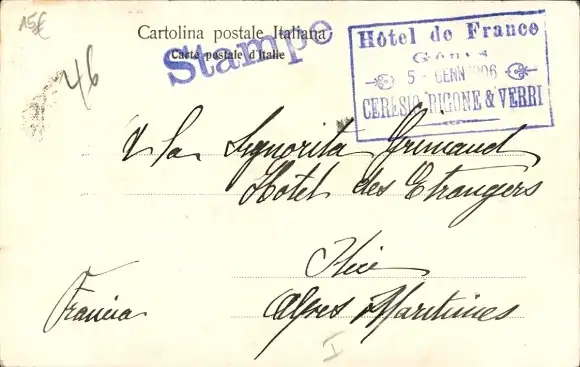 15€
4/6
Cartolina postale Italiana
Carte postale d'Italie
Stampe
Hôtel de France
Gênes
5 - GENN 1906
CERESIO, RIGONE & VERRI
Signorita Grimaud
Hôtel des Etrangers
Nice
Francia
Alpes Maritimes
I